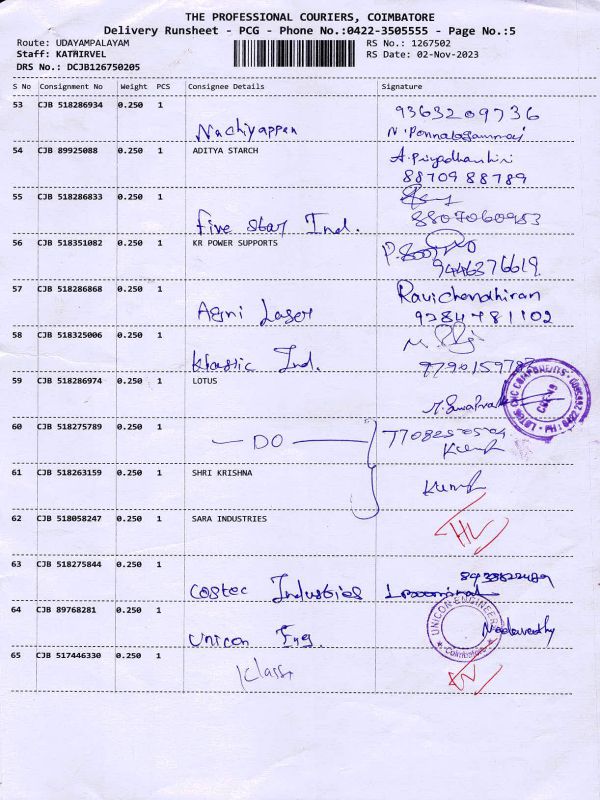 THE PROFESSIONAL COURIERS, COIMBATORE
Delivery Runsheet - PCG - Phone No.:0422-3505555 - Page No.:5
Route: UDAYAMPALAYAM RS No.: 1267502
Staff: KATHIRVEL RS Date: 02-Nov-2023
DRS No.: DCJB126750205
S No Consignment No Weight PCS Consignee Details Signature
53 CJB 518286934 0.250 1 9363209736
Nachiyappan
54 CJB 89925088 0.250 1 ADITYA STARCH
8870988789
55 CJB 518286833 0.250 1
Five Star Ind. 8807060953
56 CJB 518351082 0.250 1 KR POWER SUPPORTS
9446376619.
57 CJB 518286868 0.250 1 Ravichendhiran
Agni Laser 9284781102
58 CJB 518325006 0.250 1
Ind.
59 CJB 518286974 0.250 1 LOTUS
LOTUS CNC COMPONENTS
60 CJB 518275789 0.250 1
DO
61 CJB 518263159 0.250 1 SHRI KRISHNA
62 CJB 518058247 0.250 1 SARA INDUSTRIES
63 CJB 518275844 0.250 1
Costec Industries
64 CJB 89768281 0.250 1 UNICON ENGINEER
Unicon Eng. Coimbatore
65 CJB 517446330 0.250 1